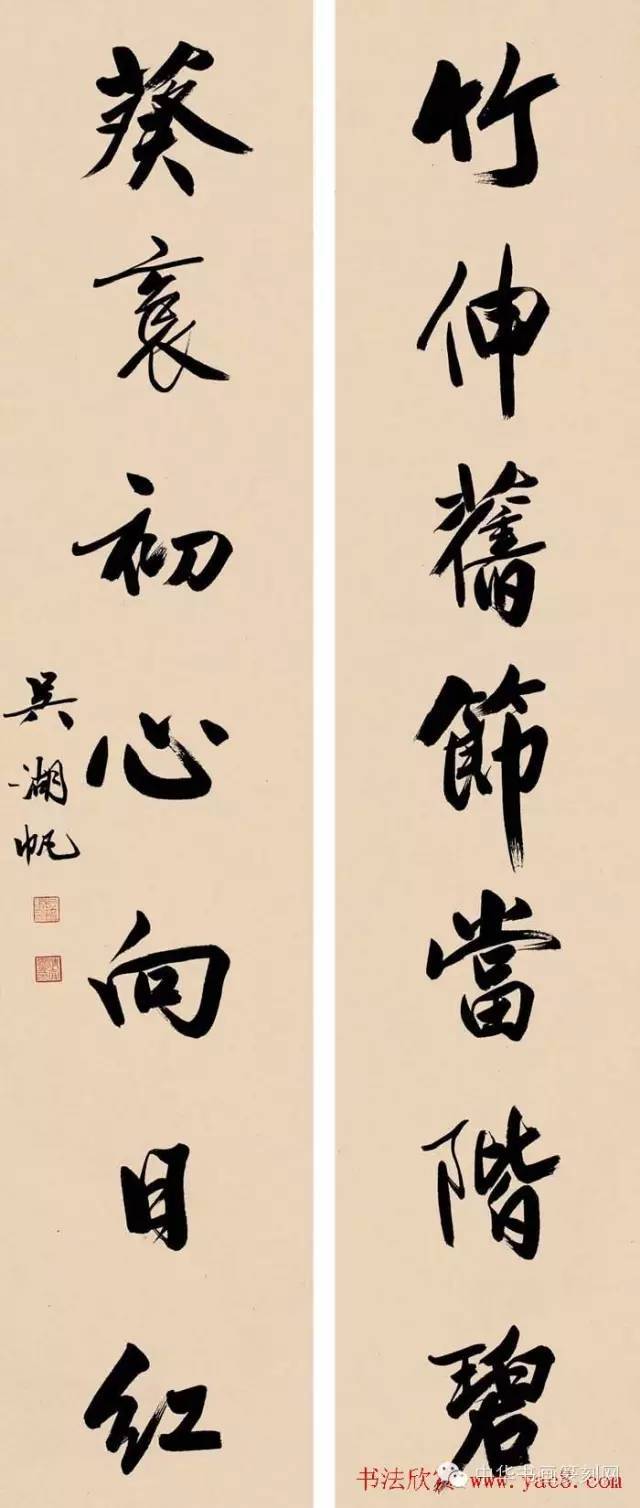 竹伸舊節當階碧
葵初心向日紅
吳湖帆
书法欣 www.yac8.com
中华书画篆刻网